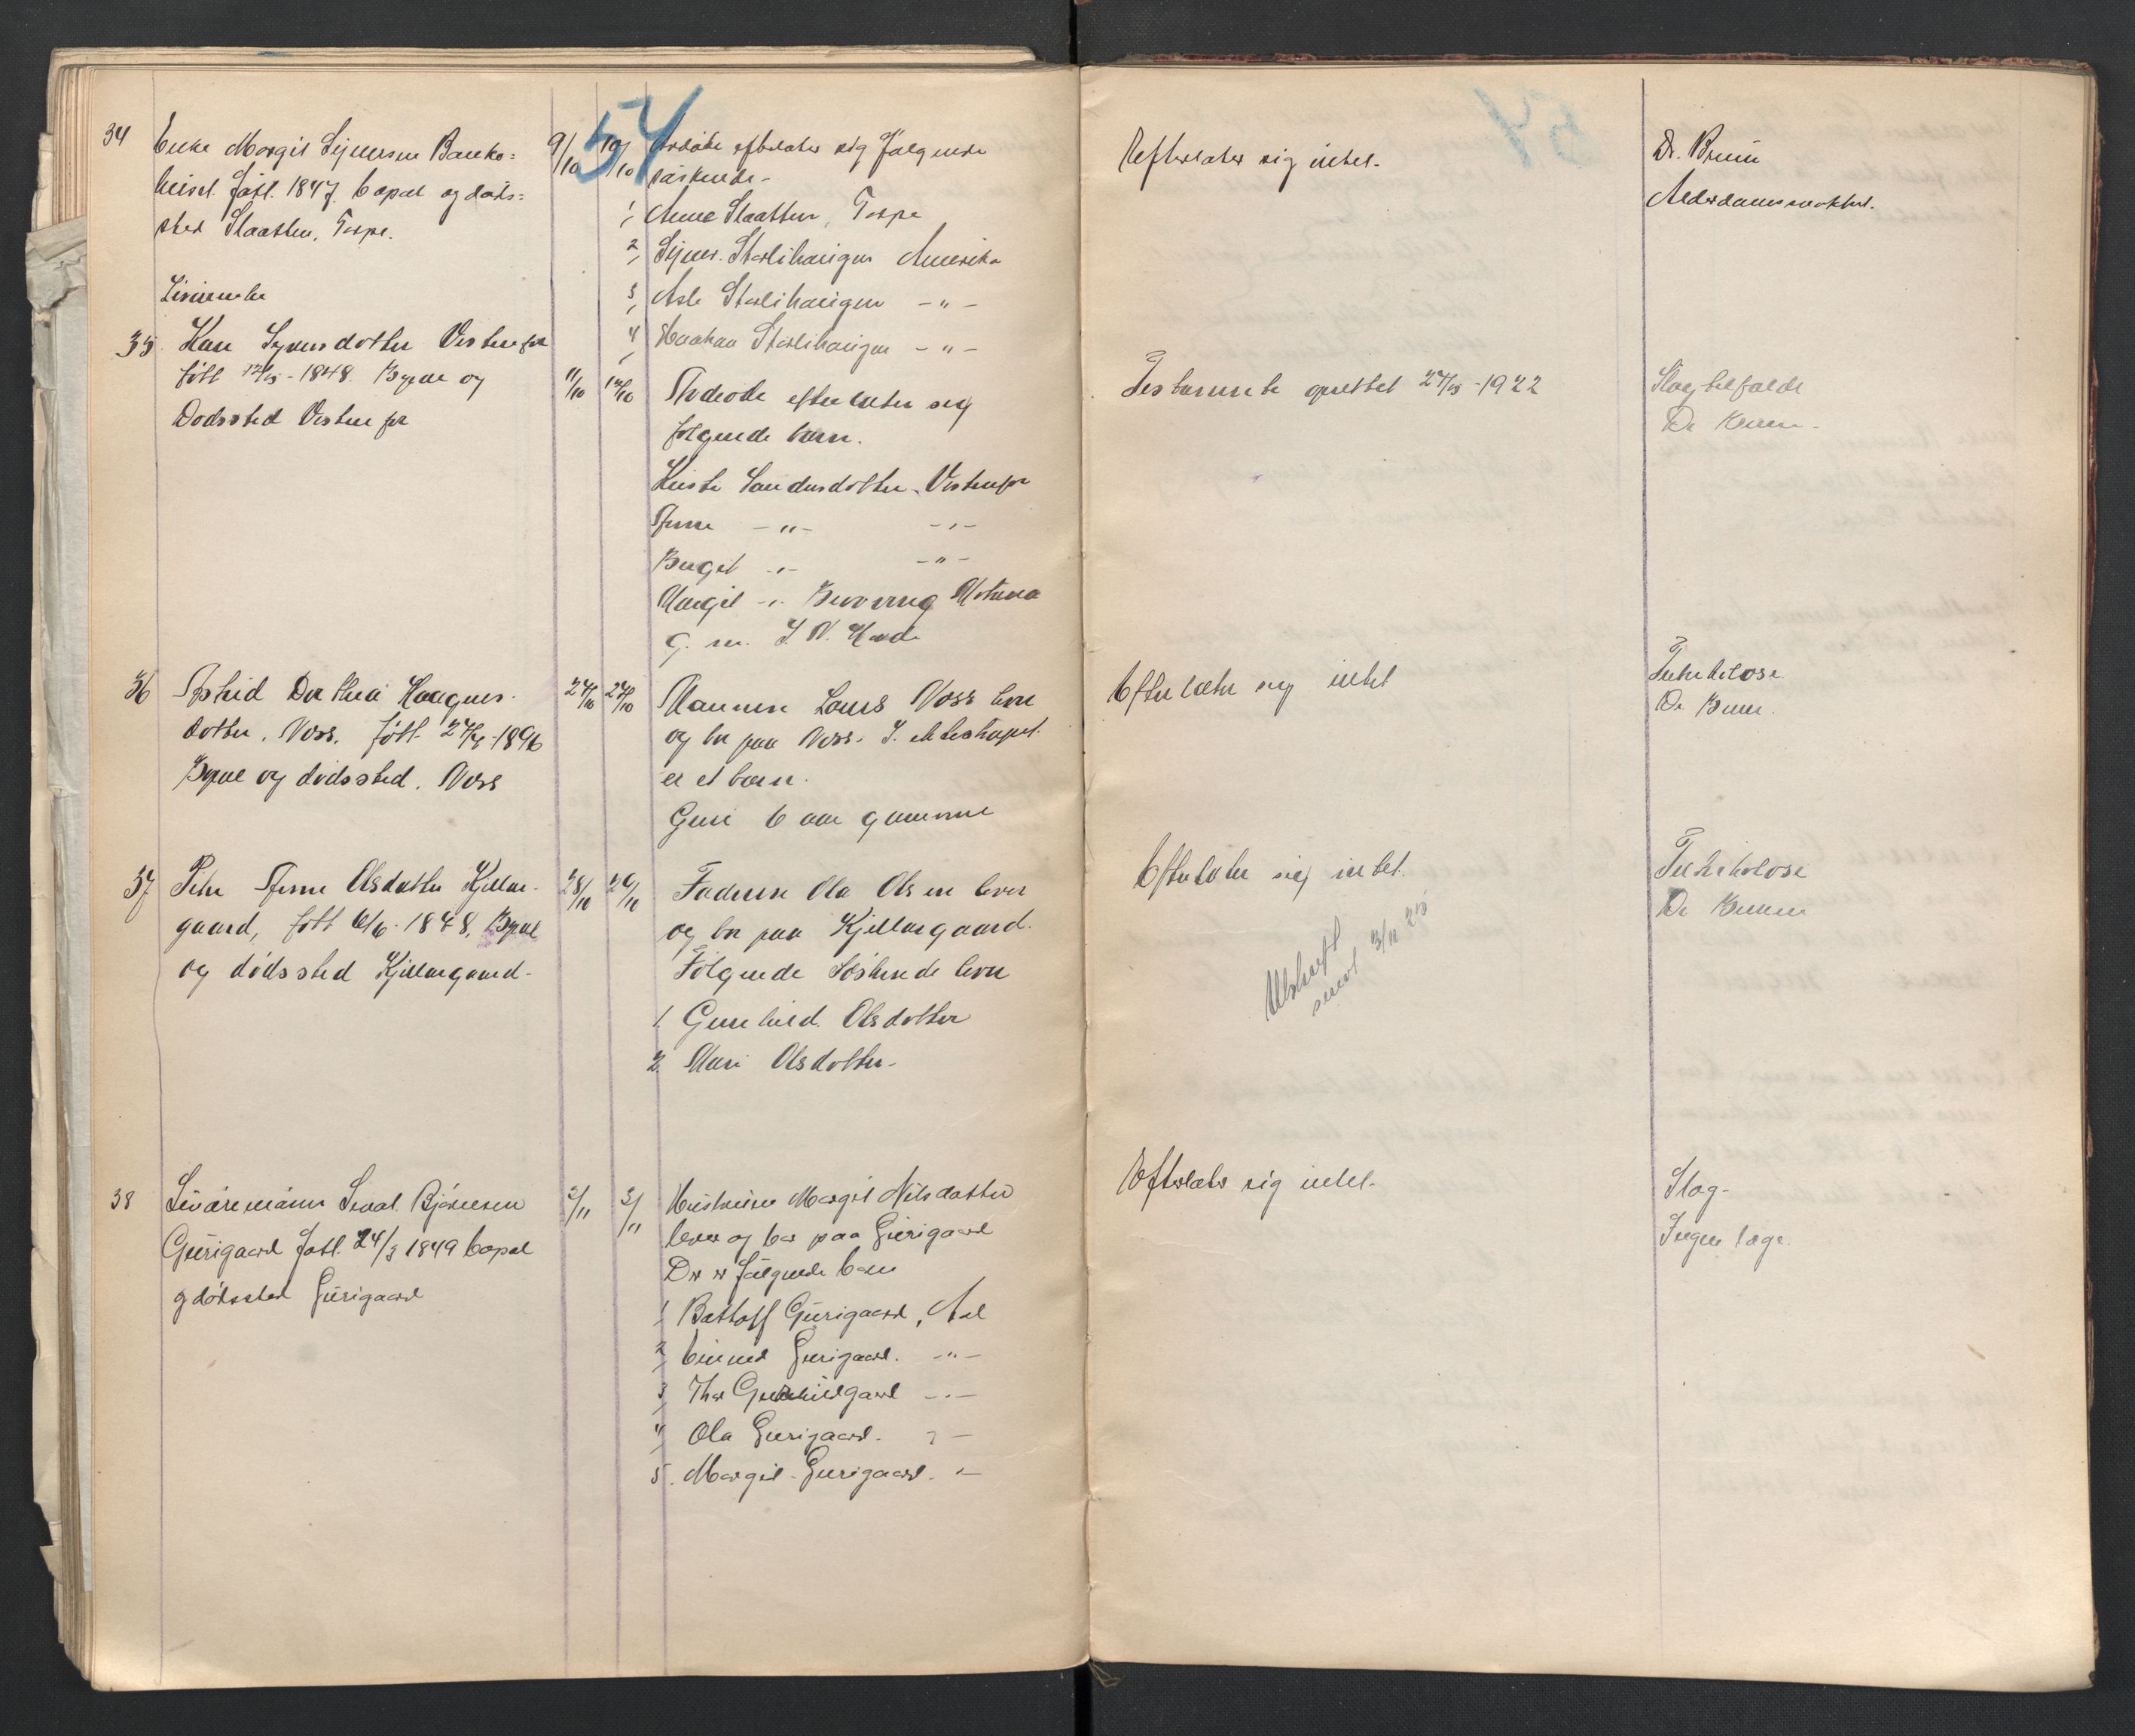 54
34 Enke Margit Sjursen Banke-
heiset. født. 1847. bopæl og døds-
sted Slaatten, Torpe.
9/10 10/10
Avdøde efterlater sig følgende
søskende-
1, Anne Slaatten, Torpe
2, Sjur. Starlihaugen Amerika
3, Asle Starlihaugen -"-
4, Haakon Starlihaugen -"-
Efterlater sig intet.
Dr. Bruun
Alderdomssvakhet.
35. Kari Syversdotter Vestenfor
født 12/5-1848. Bopæl og
Dødssted Vestenfor
11/10 12/10
Avdøde efterlater sig
følgende barn.
Kristi Sandersdotter. Vestenfor
-"- -"-
Birgit -"- -"-
Margit -"-
g. m.
Testamente oprettet 24/5-1922
Slagtilfælde
Dr Bruun
36 Astrid Dorthea Haagens-
dotter. Voss. født 1896
Bopæl og dødssted. Voss
24/10 24/10
Mannen Lars Voss lever
og bor paa Voss. I ekteskapet.
er et barn.
Guri 6 aar gammel
Efterlater sig intet
Tuberkulose.
Dr Bruun.
37 Pike Olsdatter Kjellar-
gaard, født 6/6-1848, Bopæl
og dødssted Kjellargaard-
28/10 29/10
Faderen Ola Olsen lever
og bor paa Kjellargaard.
Følgende Søskende lever
1. Gunhild. Olsdotter
2. Mari Olsdotter-
Efterlater sig intet.
Utskrift
send 3/12 25
Tuberkolose
Dr Bruun
38 Bjørnsen
Gurigaard født. 24/3 1849 bopæl
og dødssted Gurigaard
2/11 3/11
Hustruen Margit Nilsdatter
lever og bor paa Gurigaard
Der er følgende barn
1, Bottolf Gurigaard, Aal
2, Eivind Gurigaard. -"-
3, Thor Gunhildgard -"-
4, Ola Gurigaard. -"-
5. Margit Gurigaard. -"-
Efterlater sig intet.
Slag-
Ingen læge.